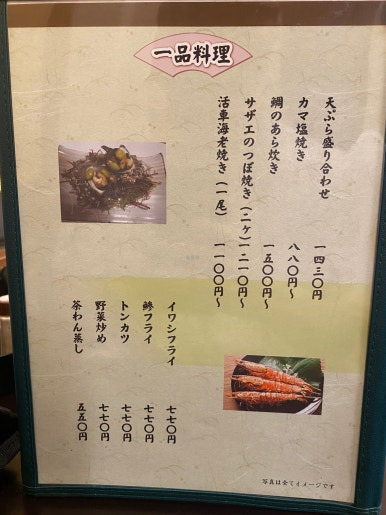 一品料理
天ぷら盛り合わせ 一四三〇円
カマ塩焼き 八八〇円〜
鯛のあら炊き 一五〇〇円〜
サザエのつぼ焼き(二ケ) 一二一〇円〜
活車海老焼き(一尾) 一一〇〇円〜
イワシフライ 七七〇円
鯵フライ 七七〇円
トンカツ 七七〇円
野菜炒め 七七〇円
茶わん蒸し 五五〇円
写真は全てイメージです